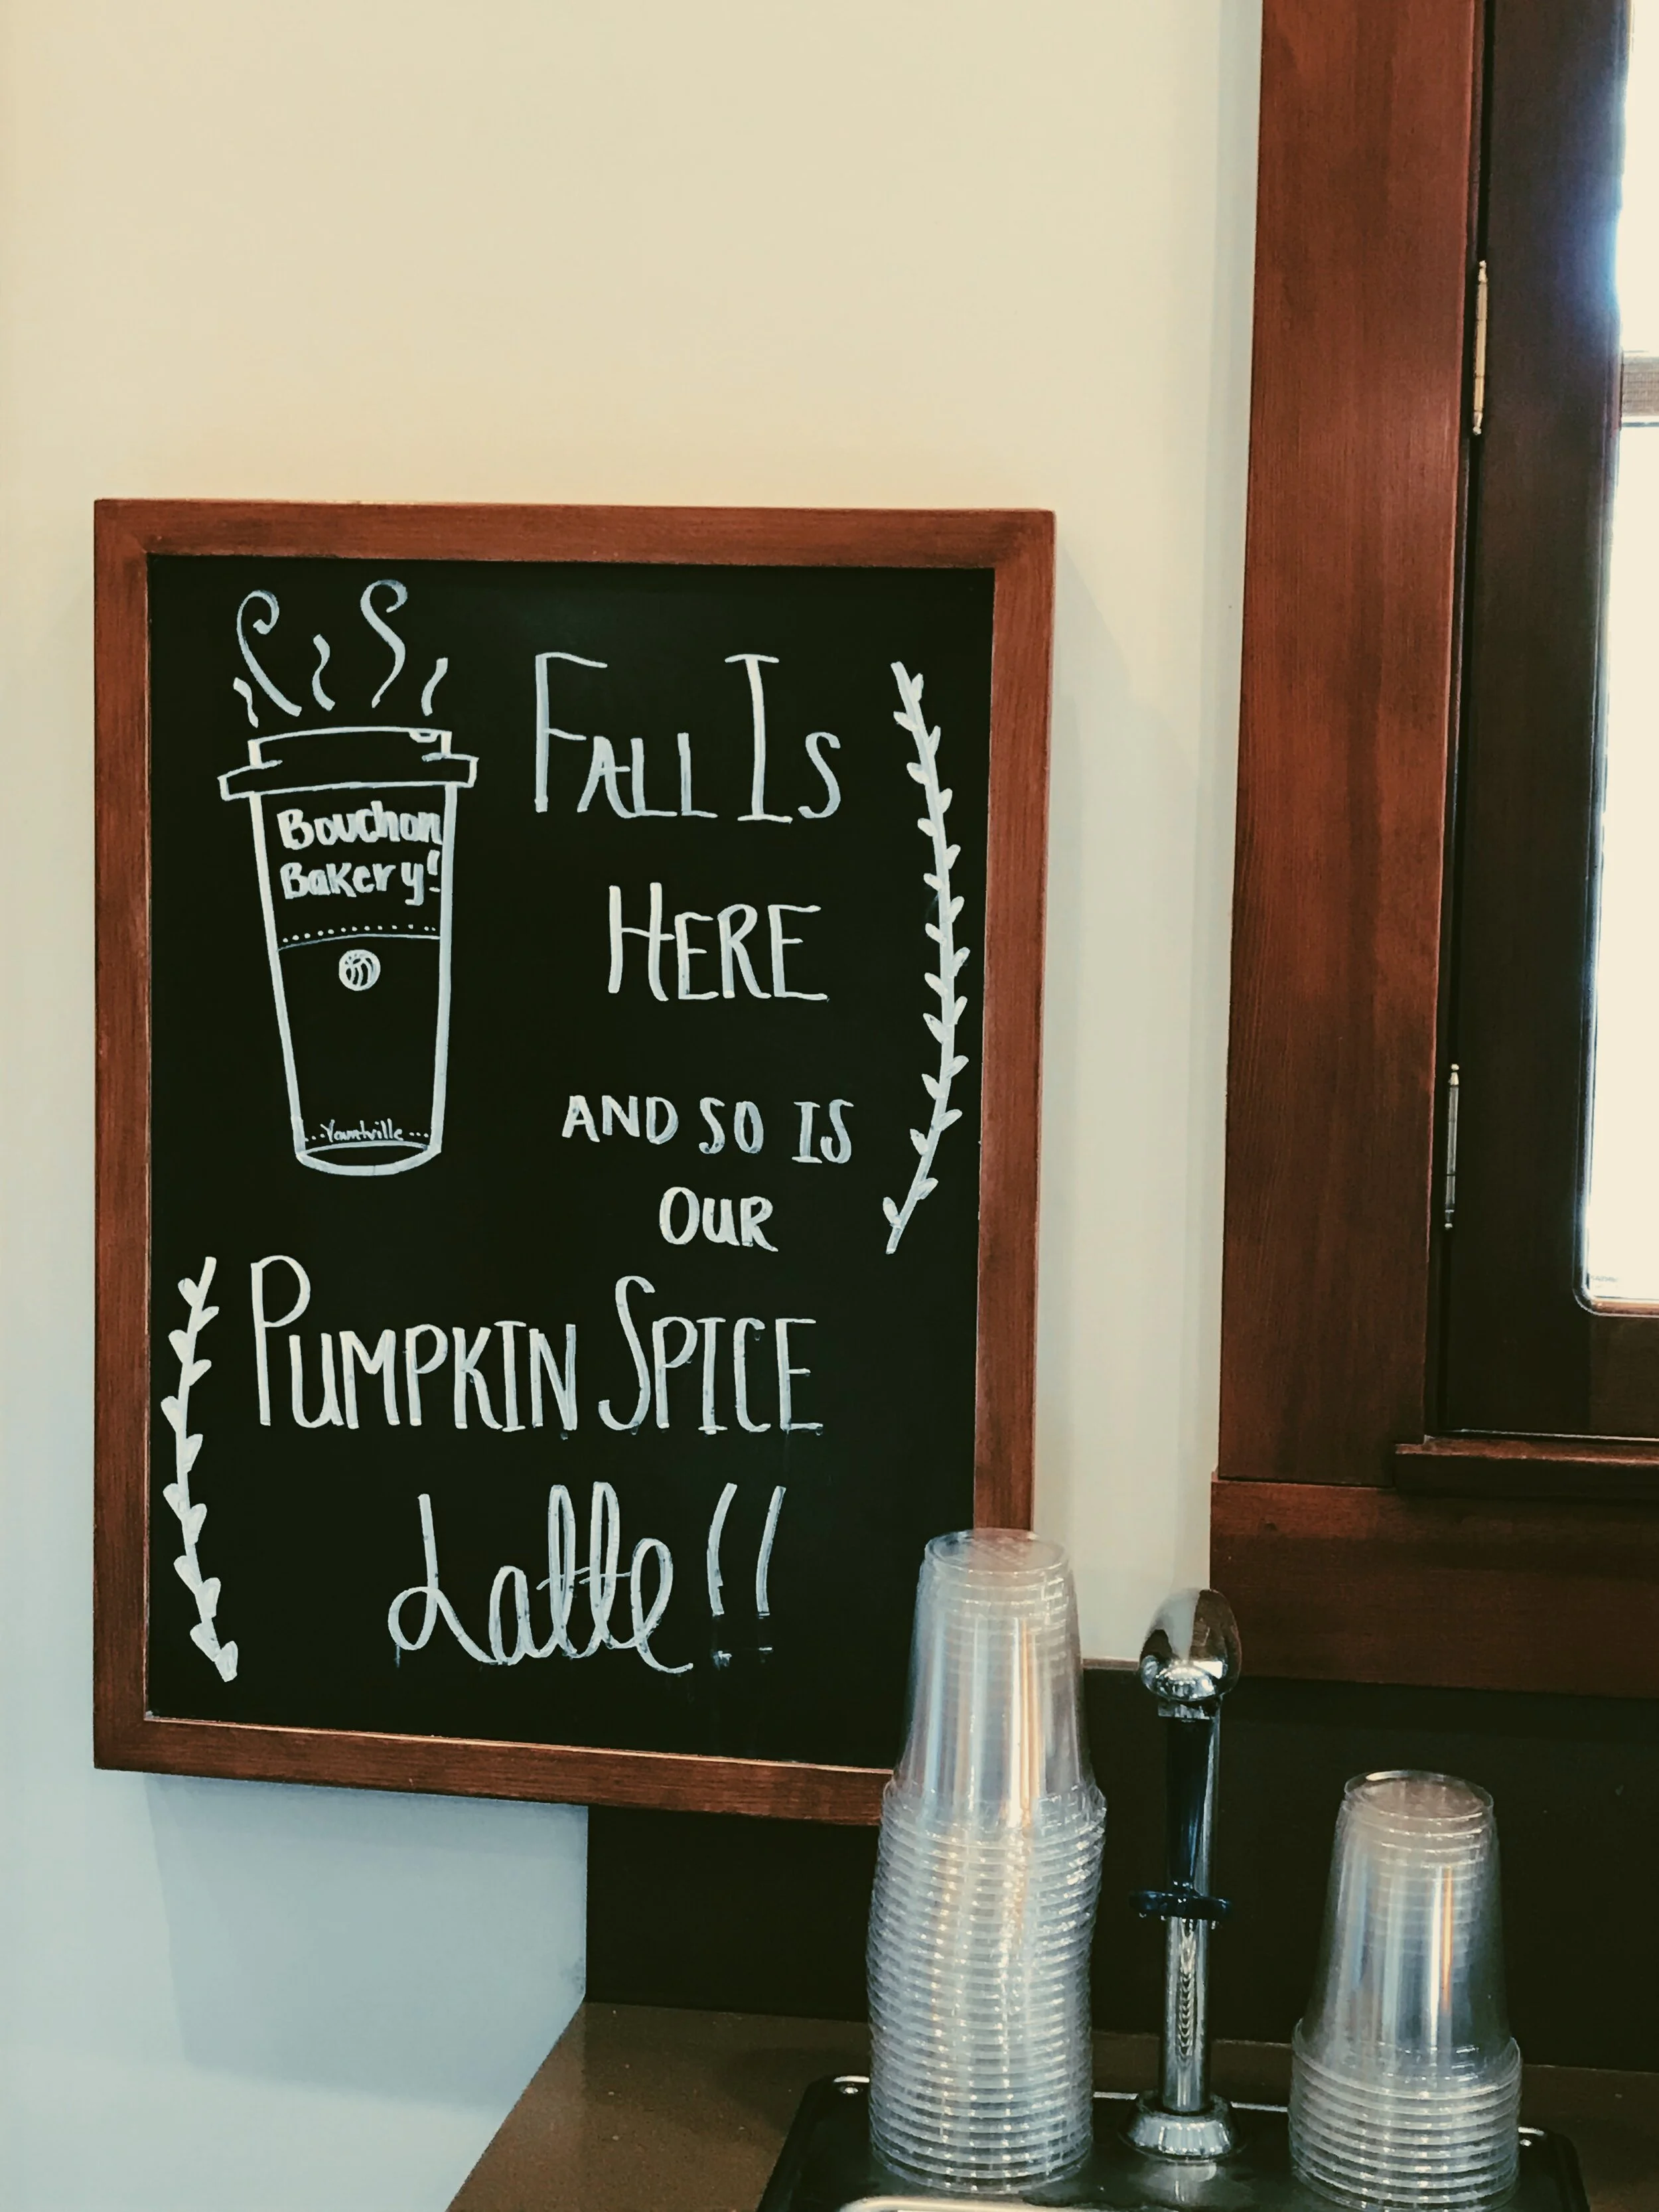 Bouchon
Bakery!
...Yountville...
FALL IS
HERE
AND SO IS
OUR
PUMPKIN SPICE
Latte!!